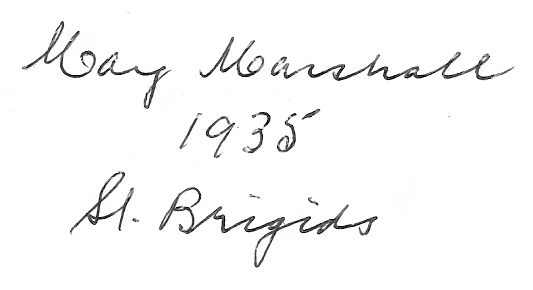 May Marshall
1935
St. Brigids